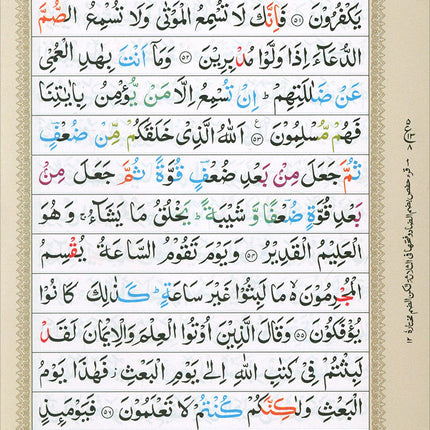 يَكْفُرُوْنَ ۝٥١ فَاِنَّكَ لَا تُسْمِعُ الْمَوْتٰى وَلَا تُسْمِعُ الصُّمَّ
الدُّعَآءَ اِذَا وَلَّوْا مُدْبِرِيْنَ ۝٥٢ وَمَاۤ اَنْتَ بِهٰدِ الْعُمْيِ
عَنْ ضَلٰلَتِهِمْ ؕ اِنْ تُسْمِعُ اِلَّا مَنْ يُّؤْمِنُ بِاٰيٰتِنَا
فَهُمْ مُّسْلِمُوْنَ ۝٥٣ ع اَللّٰهُ الَّذِيْ خَلَقَكُمْ مِّنْ ضُعْفٍ
ثُمَّ جَعَلَ مِنْۢ بَعْدِ ضُعْفٍ قُوَّةً ثُمَّ جَعَلَ مِنْۢ
بَعْدِ قُوَّةٍ ضُعْفًا وَّ شَيْبَةً ؕ يَخْلُقُ مَا يَشَآءُ ۚ وَ هُوَ
الْعَلِيْمُ الْقَدِيْرُ ۝٥٤ وَيَوْمَ تَقُوْمُ السَّاعَةُ يُقْسِمُ
الْمُجْرِمُوْنَ ۙ۬ مَا لَبِثُوْا غَيْرَ سَاعَةٍ ؕ كَذٰلِكَ كَانُوْا
يُؤْفَكُوْنَ ۝٥٥ وَقَالَ الَّذِيْنَ اُوْتُوا الْعِلْمَ وَالْاِيْمَانَ لَقَدْ
لَبِثْتُمْ فِيْ كِتٰبِ اللّٰهِ اِلٰى يَوْمِ الْبَعْثِ ؗ فَهٰذَا يَوْمُ
الْبَعْثِ وَلٰكِنَّكُمْ كُنْتُمْ لَا تَعْلَمُوْنَ ۝٥٦ فَيَوْمَئِذٍ